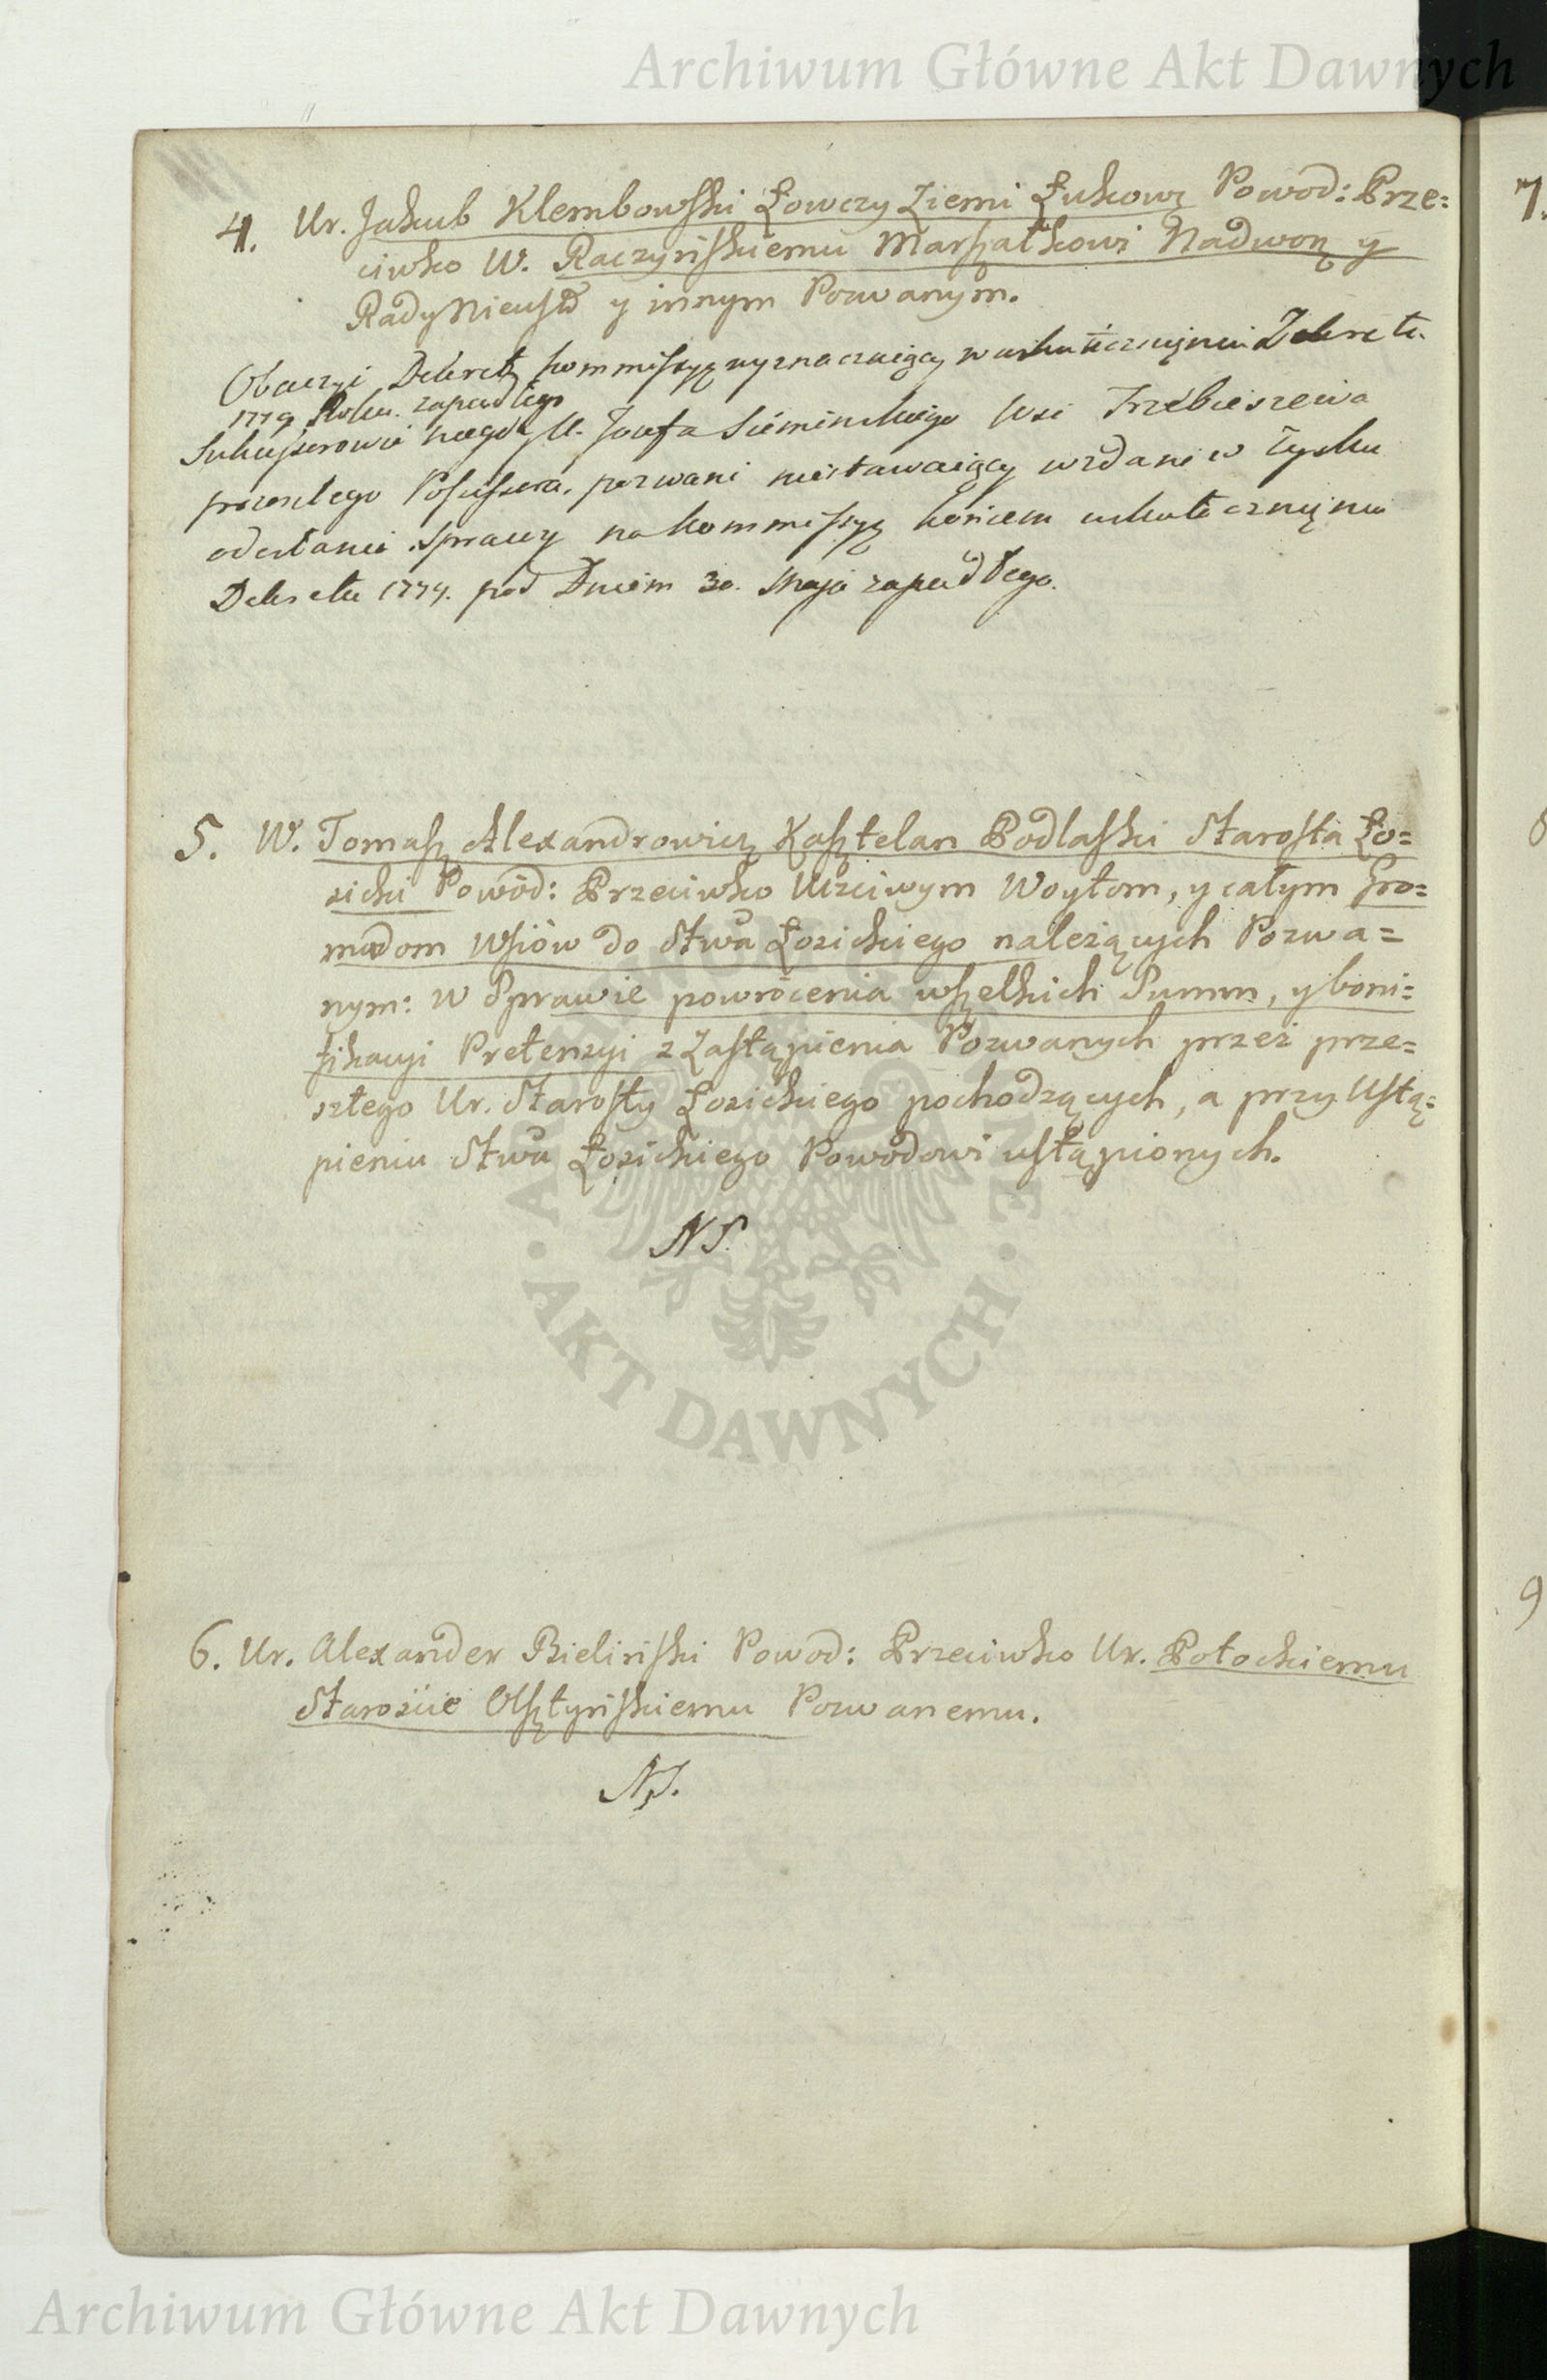 Archiwum Główne Akt Dawnych
4. Ur. Jakub Klembowski Łowczy Ziemi Łukow: Powod: Prze=
ciwko W. Raczyńskiemu Marszałkowi Nadwor: y
Rady Nieust: y innym Pozwanym.
Obaczyć Dekret kommissyą wyznaczaiący w uskutecznieniu Dekretu
1779 Roku zapadłego
Sukcessorowie niegdy U. Jozefa Siemieńskiego Wsi Trzebieszewa
przeszłego Possessora, pozwani niestawaiący wzdani w zysku
odesłanie sprawy na kommissyą końcem uskutecznienia
Dekretu 1779. pod Dniem 30. Maja zapadłego.
5. W. Tomasz Alexandrowicz Kasztelan Podlaski Starosta Ło=
sicki Powód: Przeciwko Uczciwym Woytom, y całym Gro=
madom Wsiów do Stwa Łosickiego należących Pozwa=
nym: w Sprawie powrócenia wszelkich Summ, y boni=
fikacyi Pretensyi z Zastąpienia Pozwanych przez prze=
szłego Ur. Starosty Łosickiego pochodzących, a przy Ustą=
pieniu Stwa Łosickiego Powodowi ustąpionych.
NS.
6. Ur. Alexander Bieliński Powod: Przeciwko Ur. Potockiemu
Starościе Olsztyńskiemu Pozwanemu.
NS.
7.
9
AKT DAWNYCH
Archiwum Główne Akt Dawnych